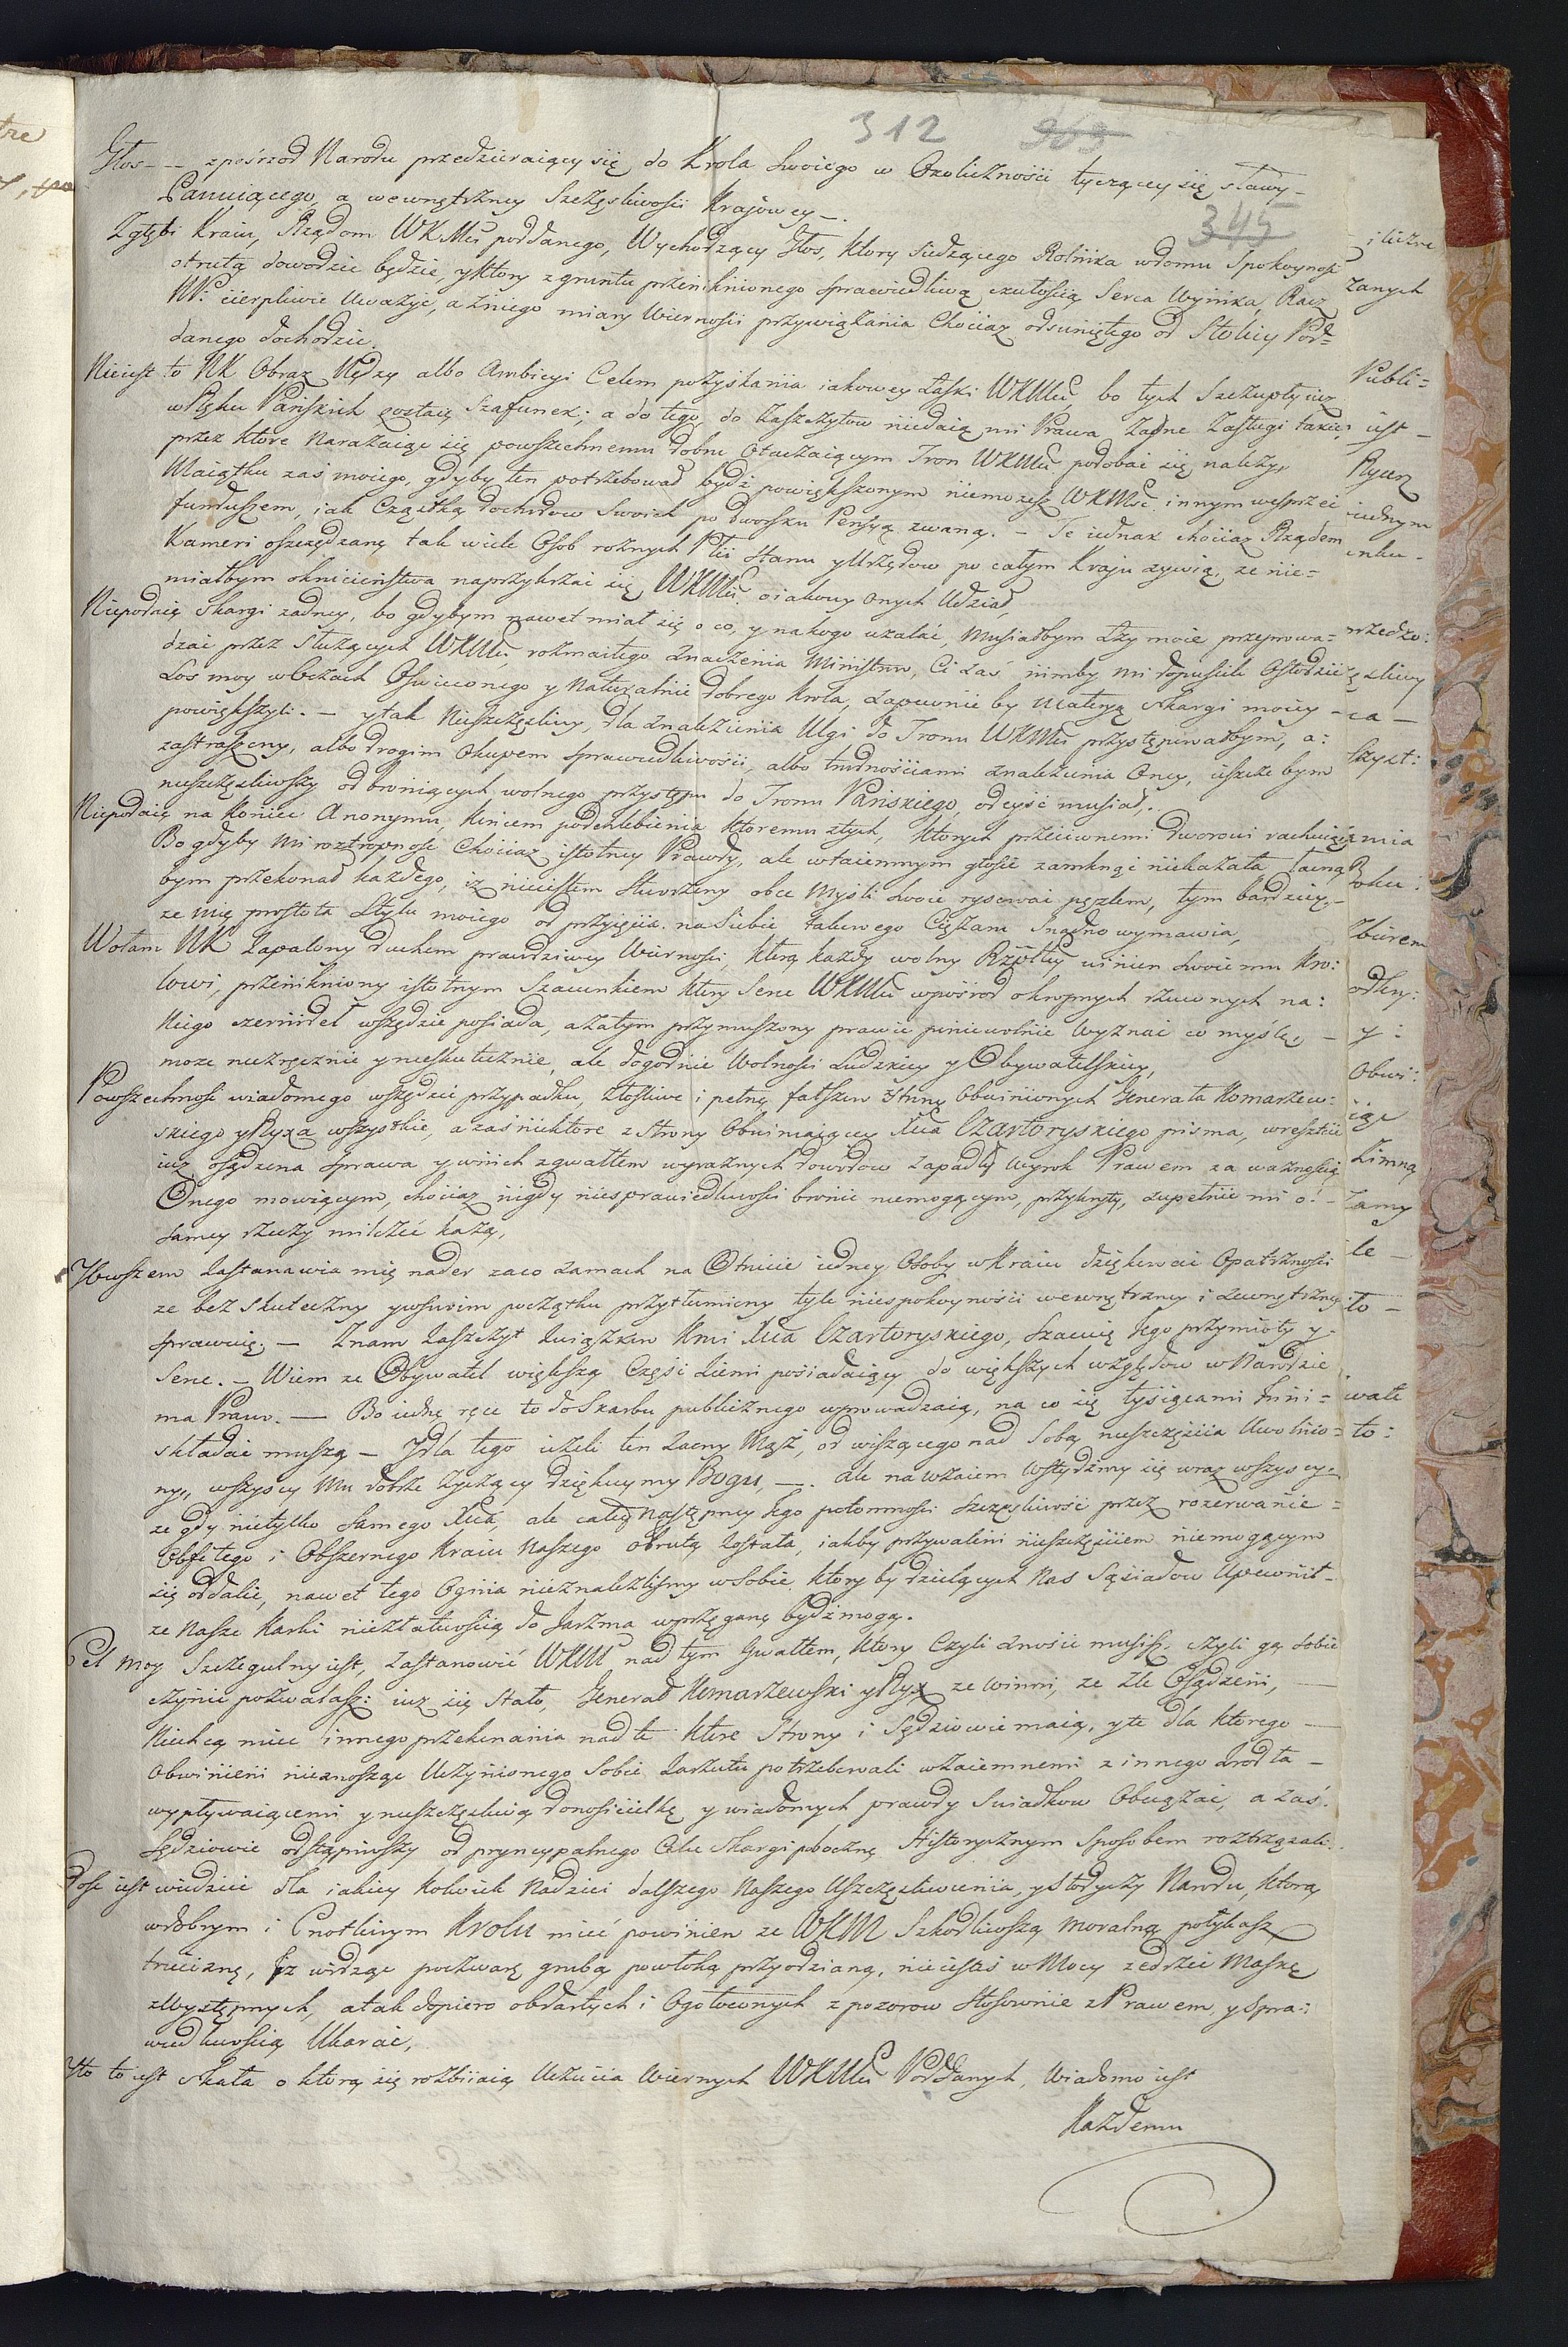 312 363
Głos - - zpośrzod Narodu przedzieraiący się do Krola swoiego w Okoliczności tyczącey się sławy -
Panuiącego, a wewnętrzney Szczęśliwości Krajowey -.
345
Zgłębi Kraiu, Rządom WKMci poddanego, Wychodzący Głos, ktory siedzącego Rolnika wdomu Spokoyność
otrutą dowodzić będzie, yktory zgruntu przeniknionego sprawiedliwą czułością Serca Wynika, Racz
NK: cierpliwie Uważyć, a zniego miary Wierności przywiązania Chociaz odsuniętego od Stolicy Pod=
danego dochodzić.
Nieiest to NK Obraz Nędzy albo Ambicyi Celem pozyskania iakowey Łaski WKMci, bo tych Szczupły iuz
w Ręku Pańskich zostaię Szafunek; a do tego, do Zaszczytow niedaią mi Prawa Zadne Zasługi takie,
przez ktore Narazaiąc się powszechnemu dobru Otaczaiącym Tron WKMci podobać się należy,
Maiątku zaś moiego, gdyby ten potrzebował bydź powiększonym niemozesz WKMść innym wesprzeć
funduszem, iak Cząstką dochodow Swoich po dworsku Pensyą zwaną. - Te iednak chociaz Rządem
Kameri oszczędzane tak wiele Osob roznych Płci Stanu y Urzędow po całym Kraju zywią, ze nie=
miałbym okrucieństwa naprzykrzać się WKMci o iakowy onych Udział,
Niepodaię skargi zadney, bo gdybym nawet miał się o co, y nakogo uzalać, Musiałbym Łzy moie przeprowa=
dzać przez Służących WKMci rozmaitego Znaczenia Ministrow, Ci zaś nimby mi dopuścili Osłodzić
Los moy w Oczach Oświeconego y Naturalnie dobrego Krola, zapewnie by Materyą skargi moiey -
powiększyli. - ytak Nieszczęśliwy, dla Znalezienia Ulgi do Tronu WKMci przystępowałbym, a:
zastraszony, albo drogim Okupem sprawiedliwości, albo trudnościami znalezienia Oney, ieszcze bym
nieszczęśliwszy od broniących wolnego przystępu do Tronu Pańskiego, odeyść musiał.
Niepodaię na koniec Anonymu, końcem podchlebienia ktoremu ztych, ktorych przeciwnemi dworowi rachuią
Bo gdyby mi roztropność Chociaz istotney Prawdy, ale wtaiemnym głosie zamknąć niekazała łacno
bym przekonał kazdego, iz nieiestem Stworzony obce Myśli swoie rysować pęzlem, tym bardziey -
ze mię prostota Stylu moiego od przyięcia na siebie takowego Ciężaru Snadno wymawia,
Wołam NK Zapalony duchem prawdziwey Wierności, ktorą kazdy wolny Rzpltey winien swoiemu Kro:
lowi, przenikniony istotnym Szacunkiem ktory Serce WKMci wpośrod okropnych rzuconych na:
Niego czernideł wszędzie posiada, a zatym przymuszony prawie poniewolnie wyznać co myślę, -
moze niezręcznie ynieskutecznie, ale dogodnie Wolności Ludzkiey y Obywatelskiey,
Powszechność wiadomego wszędzie przypadku, złośliwe i pełne fałszow Stronę Obwinionych Generała Komarzew:
skiego yRyxa wszystkie, a zaś niektore z Strony Obwiniaiącey Xcia Czartoryskiego pisma, wreszcie
iuz osądzona Sprawa ywnich zgwałtem wyraznych dowodow zapadły Wyrok Prawem za waznością
Onego mowiącym, chociaz nigdy niesprawiedliwości bronić niemogącym, przykryty, zupełnie mi o! -
samey rzeczy milczeć każą,
Owszem Zastanawia mię nader zaco zamach na Otrucie iedney Osoby wkraiu dziękować Opatrzności
ze bez skuteczny yswoim początku przytłumiony tyle niespokoyności wewnętrzney i zewnętrzney
sprawuie. - Znam Zaszczyt Związkow Krwi Xcia Czartoryskiego, szacuię Iego przymioty y -
Serce. - Wiem ze Obywatel większą Część Ziemi posiadaiący do większych względow w Narodzie
ma Prawo. - Bo iedne ręce to do Skarbu publicznego wprowadzaią, na co się tysiącami Inni =
składać muszą - Ydla tego ieżeli ten Zacny Mąż, od wiszącego nad Sobą nieszczęścia Uwolnio=
ny, wszyscy Mu dobrze życzący dziękuymy Bogu, -. ale nawzaiem Wstydzmy się wraz wszyscy
ze gdy nietylko Samego Xcia, ale całey Następney Iego potomności Szczęśliwość przez rozerwanie =
Obfitego i Obszernego Kraiu Naszego otrutą została, iakby przywaleni nieszczęściem niemogącym
się oddalić, nawet tego Ognia nieznaleźlismy w Sobie ktory by dzielących Nas Sąsiadow Upewnił -
ze Nasze Karki niezłatwością do Jarzma wprzęgane bydź mogą.
Cel moy Szczegulny iest, Zastanowić WKM nad tym Gwałtem, ktory Czyli znosić musisz, czyli go sobie
czynić pozwalasz: iuz się Stało, Generał Komarzewski yRyx ze Winni, ze Zle Osądzeni, -
Niechcę mieć innego przekonania nad te ktore Strony i Sędziowie maią, yte dla ktorego -
Obwinieni nieznosząc Uczynionego Sobie Zarzutu potrzebowali wzaiemnemi z innego Źrodła -
wypływaiącemi ynieszczęśliwą donosicielkę y wiadomych prawdy Swiadkow Obciążać, a zaś
Sędziowie odstąpiwszy od pryncypalnego Celu Skargi poboczne Historycznym Sposobem roztrząsali.
Dość iest wiedzieć dla iakiey kolwiek Nadziei dalszego Naszego Uszczęśliwienia, ysłodyczy Narodu, ktorą
wdobrym i Cnotliwym Krolu mieć powinien ze WKM Szkodliwszą moralną połykasz
truciznę, Iz widząc poczwarę grubą powłoką przyodzianą, nieiesteś w Mocy zedrzeć Maskę
zWystępnych, atak dopiero obdartych i Ogołoconych z pozorow stosownie zPrawem, yspra:
wiedliwością Ukarać,
Oto to iest Skała o ktorą się rozbiiaią Uczucia Wiernych WKMci Poddanych, Wiadomo iest
Kazdemu